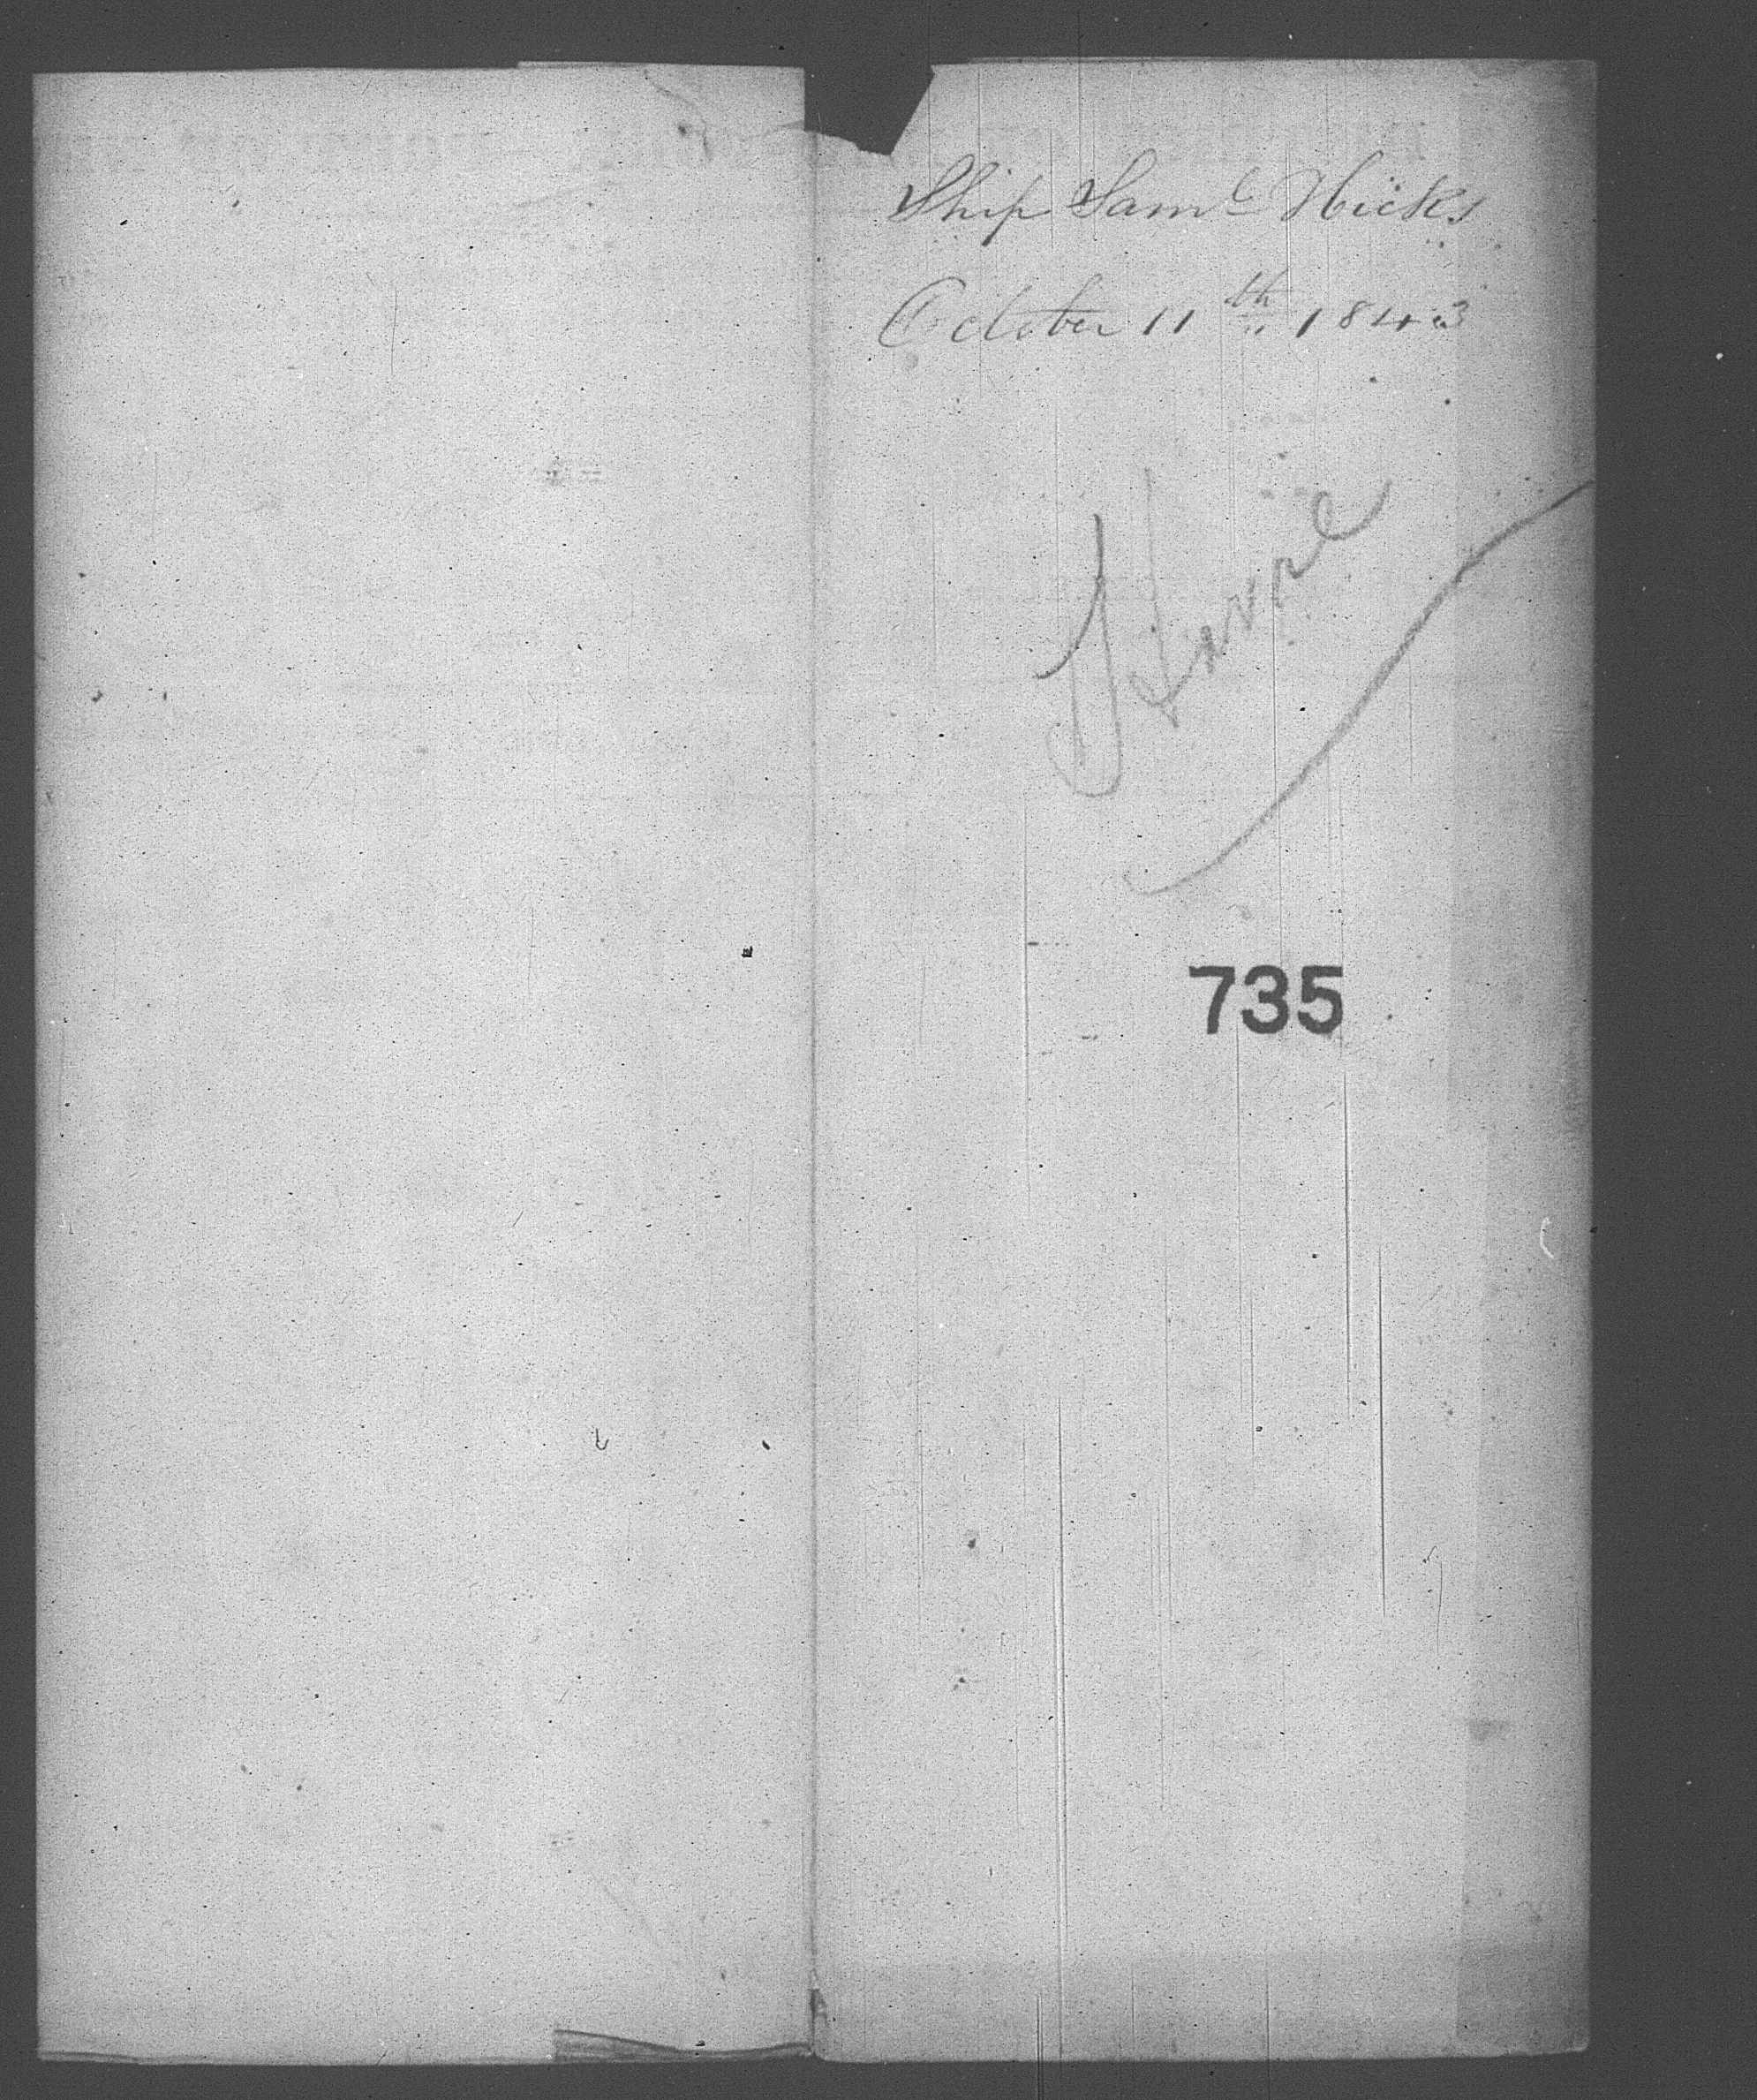 Ship Saml Hicks
October 11th 1843
Havre
735